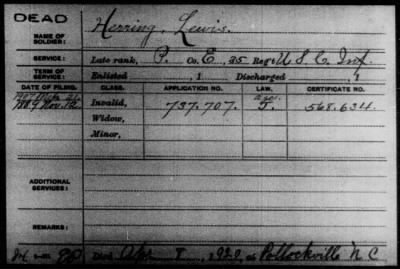 DEAD
NAME OF SOLDIER: Herring, Lewis.
SERVICE: Late rank, P. Co. E, 35 Reg't U. S. C. Inf.
TERM OF SERVICE: Enlisted , 1 Discharged , 1
DATE OF FILING. CLASS. APPLICATION NO. LAW. CERTIFICATE NO.
1889 Nov. 12 Invalid, 737.707. 568.634
Widow,
Minor,
ADDITIONAL SERVICES:
REMARKS:
Died Apr 8, 1920, at Pollocksville N C